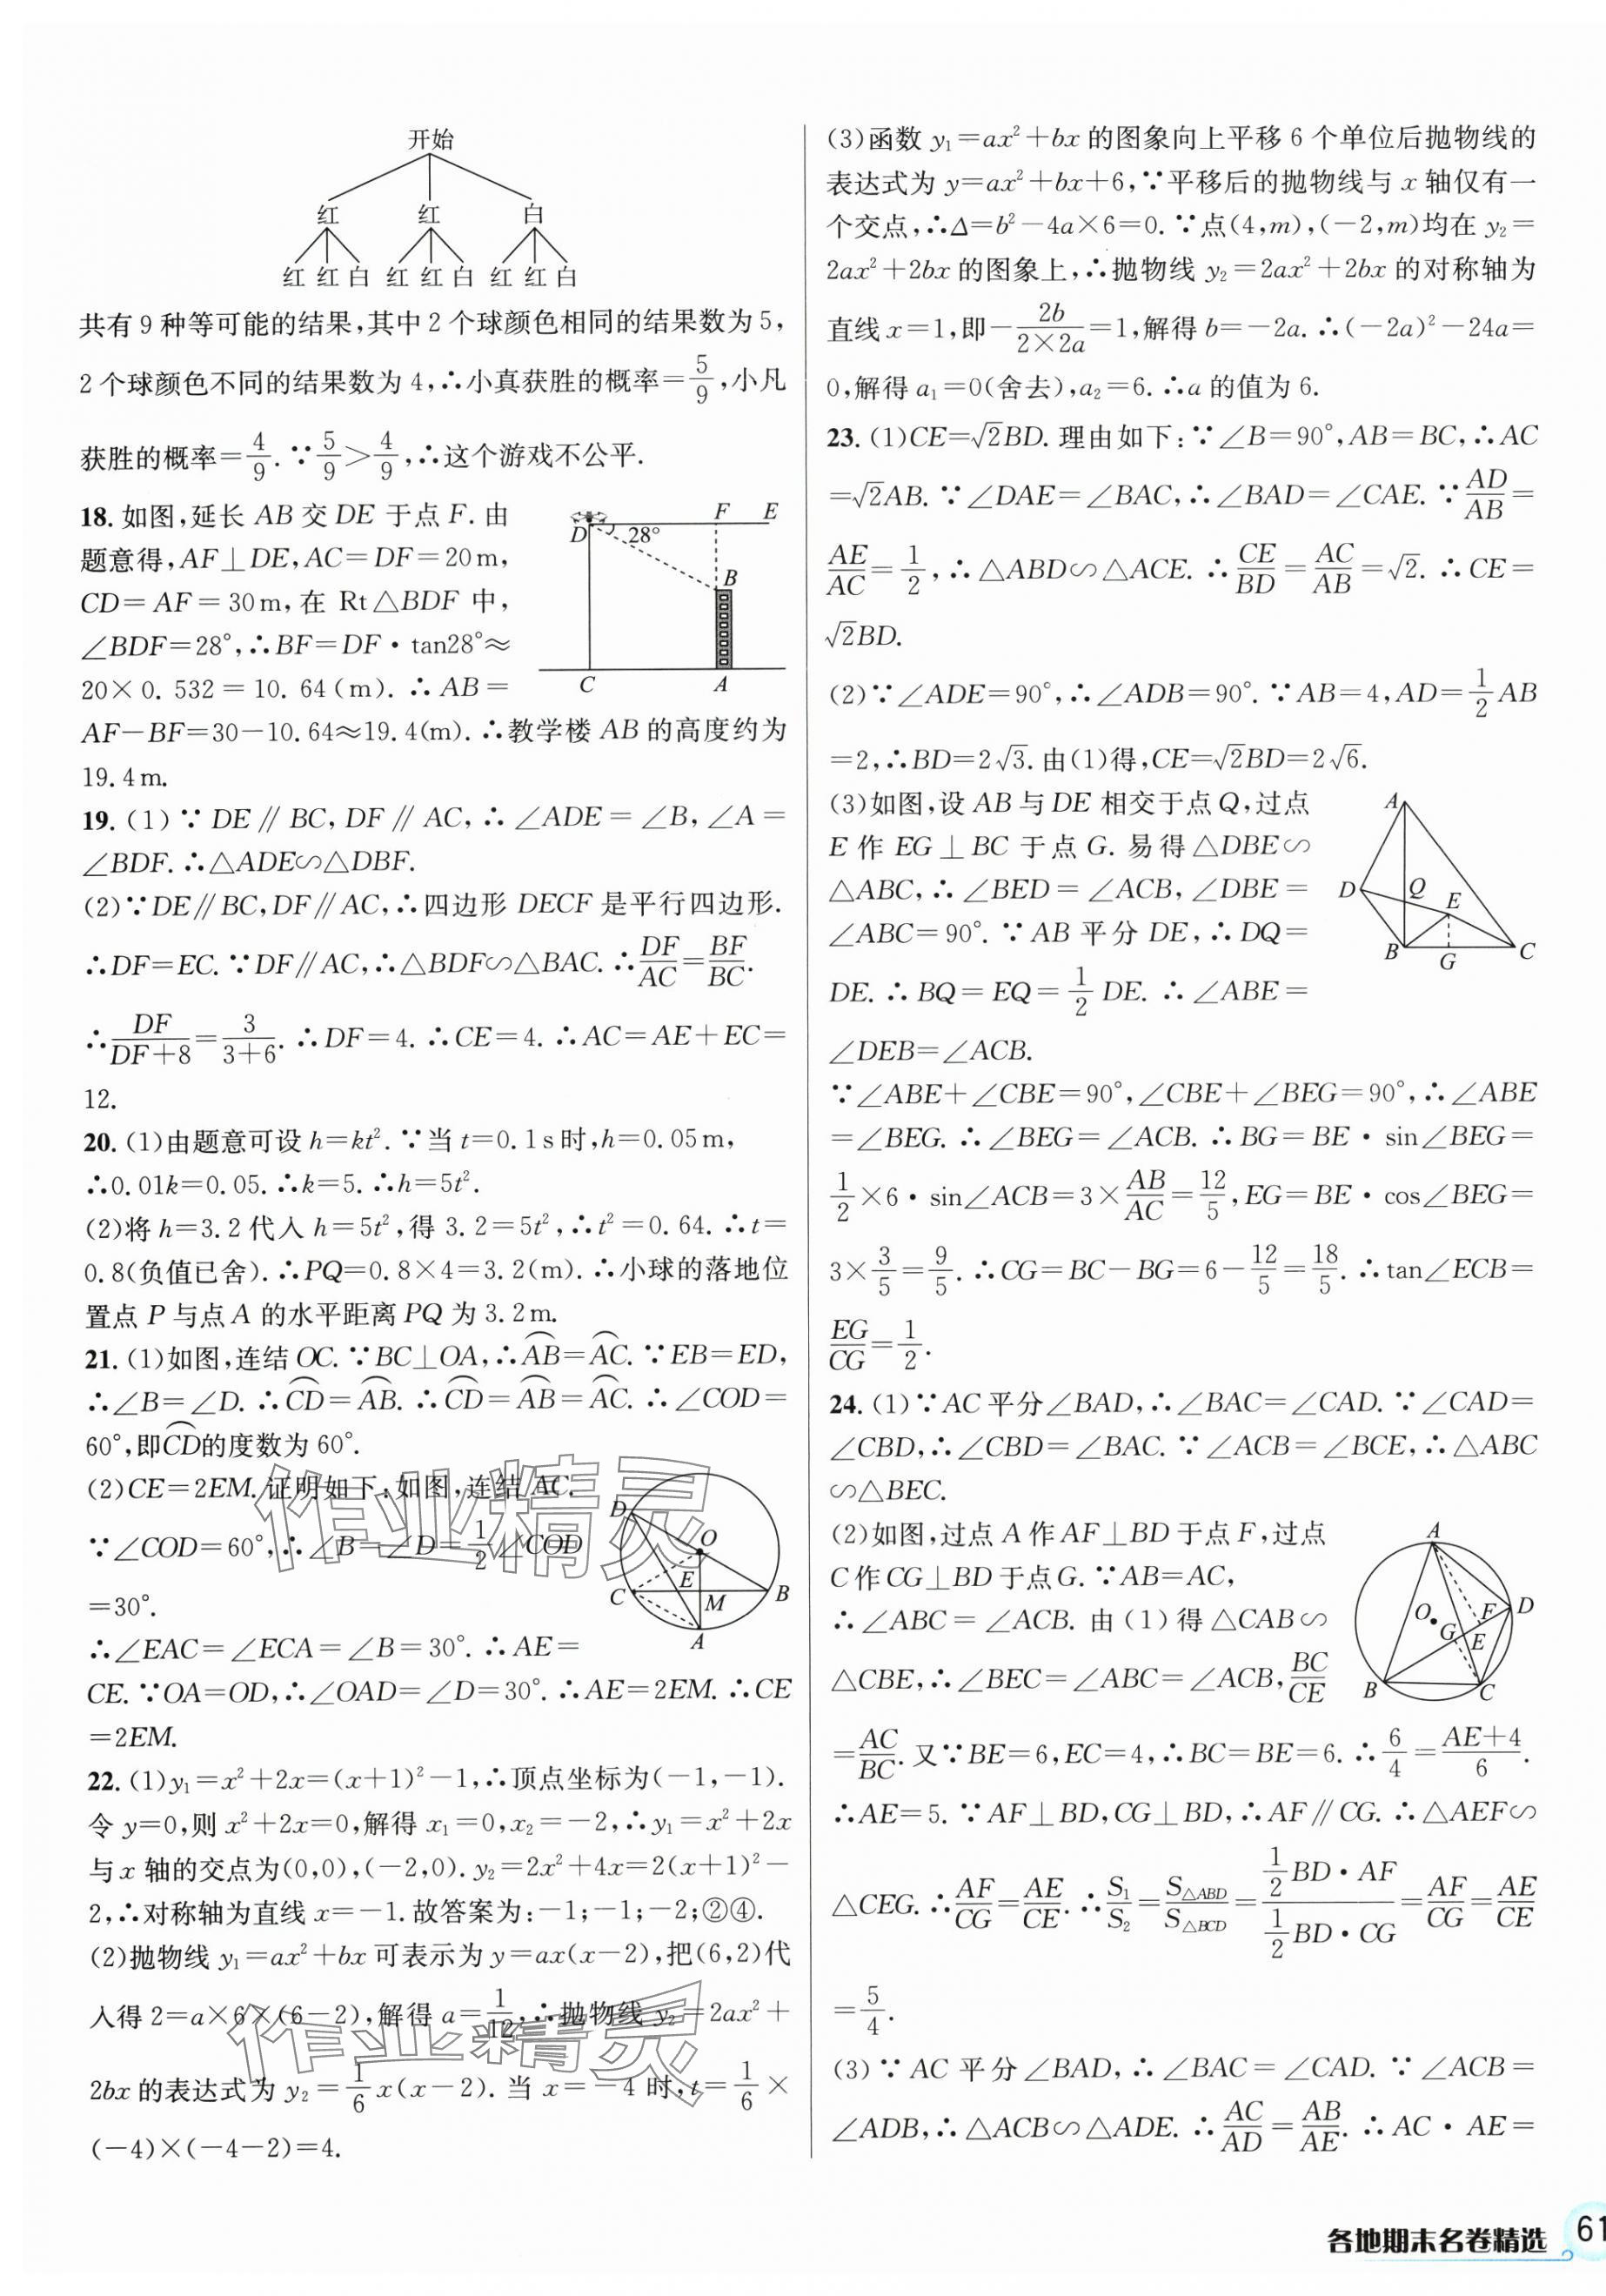 开始
红 红 白
红 红 白 红 红 白 红 红 白
共有9种等可能的结果,其中2个球颜色相同的结果数为5,
2个球颜色不同的结果数为4,∴小真获胜的概率=5/9,小凡
获胜的概率=4/9.∵5/9>4/9,∴这个游戏不公平.
18.如图,延长AB交DE于点F.由
题意得,AF⊥DE,AC=DF=20m,
CD=AF=30m,在Rt△BDF中,
∠BDF=28°,∴BF=DF·tan28°≈
20×0.532=10.64(m).∴AB=
AF-BF=30-10.64≈19.4(m).∴教学楼AB的高度约为
19.4m.
D 28° F E
B
C A
19.(1)∵DE∥BC,DF∥AC,∴∠ADE=∠B,∠A=
∠BDF.∴△ADE∽△DBF.
(2)∵DE∥BC,DF∥AC,∴四边形DECF是平行四边形.
∴DF=EC.∵DF∥AC,∴△BDF∽△BAC.∴DF/AC=BF/BC.
∴DF/(DF+8)=3/(3+6).∴DF=4.∴CE=4.∴AC=AE+EC=
12.
20.(1)由题意可设h=kt².∵当t=0.1s时,h=0.05m,
∴0.01k=0.05.∴k=5.∴h=5t².
(2)将h=3.2代入h=5t²,得3.2=5t²,∴t²=0.64.∴t=
0.8(负值已舍).∴PQ=0.8×4=3.2(m).∴小球的落地位
置点P与点A的水平距离PQ为3.2m.
21.(1)如图,连结OC.∵BC⊥OA,∴⌒AB=⌒AC.∵EB=ED,
∴∠B=∠D.∴⌒CD=⌒AB.∴⌒CD=⌒AB=⌒AC.∴∠COD=
60°,即⌒CD的度数为60°.
(2)CE=2EM.证明如下:如图,连结AC.
∵∠COD=60°,∴∠B=∠D=1/2∠COD
=30°.
∴∠EAC=∠ECA=∠B=30°.∴AE=
CE.∵OA=OD,∴∠OAD=∠D=30°.∴AE=2EM.∴CE
=2EM.
D O E C M B A
22.(1)y₁=x²+2x=(x+1)²-1,∴顶点坐标为(-1,-1).
令y=0,则x²+2x=0,解得x₁=0,x₂=-2,∴y₁=x²+2x
与x轴的交点为(0,0),(-2,0).y₂=2x²+4x=2(x+1)²-
2,∴对称轴为直线x=-1.故答案为:-1;-1;-2;②④.
(2)抛物线y₁=ax²+bx可表示为y=ax(x-2),把(6,2)代
入得2=a×6×(6-2),解得a=1/12,∴抛物线y₂=2ax²+
2bx的表达式为y₂=1/6x(x-2).当x=-4时,t=1/6×
(-4)×(-4-2)=4.
(3)函数y₁=ax²+bx的图象向上平移6个单位后抛物线的
表达式为y=ax²+bx+6,∵平移后的抛物线与x轴仅有一
个交点,∴Δ=b²-4a×6=0.∵点(4,m),(-2,m)均在y₂=
2ax²+2bx的图象上,∴抛物线y₂=2ax²+2bx的对称轴为
直线x=1,即-2b/(2×2a)=1,解得b=-2a.∴(-2a)²-24a=
0,解得a₁=0(舍去),a₂=6.∴a的值为6.
23.(1)CE=√2BD.理由如下:∵∠B=90°,AB=BC,∴AC
=√2AB.∵∠DAE=∠BAC,∴∠BAD=∠CAE.∵AD/AB=
AE/AC=1/2,∴△ABD∽△ACE.∴CE/BD=AC/AB=√2.∴CE=
√2BD.
(2)∵∠ADE=90°,∴∠ADB=90°.∵AB=4,AD=1/2AB
=2,∴BD=2√3.由(1)得,CE=√2BD=2√6.
(3)如图,设AB与DE相交于点Q,过点
E作EG⊥BC于点G.易得△DBE∽
△ABC,∴∠BED=∠ACB,∠DBE=
∠ABC=90°.∵AB平分DE,∴DQ=
DE.∴BQ=EQ=1/2DE.∴∠ABE=
∠DEB=∠ACB.
A D Q E B G C
∵∠ABE+∠CBE=90°,∠CBE+∠BEG=90°,∴∠ABE
=∠BEG.∴∠BEG=∠ACB.∴BG=BE·sin∠BEG=
1/2×6·sin∠ACB=3×AB/AC=12/5,EG=BE·cos∠BEG=
3×3/5=9/5.∴CG=BC-BG=6-12/5=18/5.∴tan∠ECB=
EG/CG=1/2.
24.(1)∵AC平分∠BAD,∴∠BAC=∠CAD.∵∠CAD=
∠CBD,∴∠CBD=∠BAC.∵∠ACB=∠BCE,∴△ABC
∽△BEC.
(2)如图,过点A作AF⊥BD于点F,过点
C作CG⊥BD于点G.∵AB=AC,
∴∠ABC=∠ACB.由(1)得△CAB∽
△CBE,∴∠BEC=∠ABC=∠ACB,BC/CE
=AC/BC.又∵BE=6,EC=4,∴BC=BE=6.∴6/4=(AE+4)/6.
A O F D G E B C
∴AE=5.∵AF⊥BD,CG⊥BD,∴AF∥CG.∴△AEF∽
△CEG.∴AF/CG=AE/CE.∴S₁/S₂=S△ABD/S△BCD=(1/2BD·AF)/(1/2BD·CG)=AF/CG=AE/CE
=5/4.
(3)∵AC平分∠BAD,∴∠BAC=∠CAD.∵∠ACB=
∠ADB,∴△ACB∽△ADE.∴AC/AD=AB/AE.∴AC·AE=
作业精灵
作业精灵
各地期末名卷精选 61